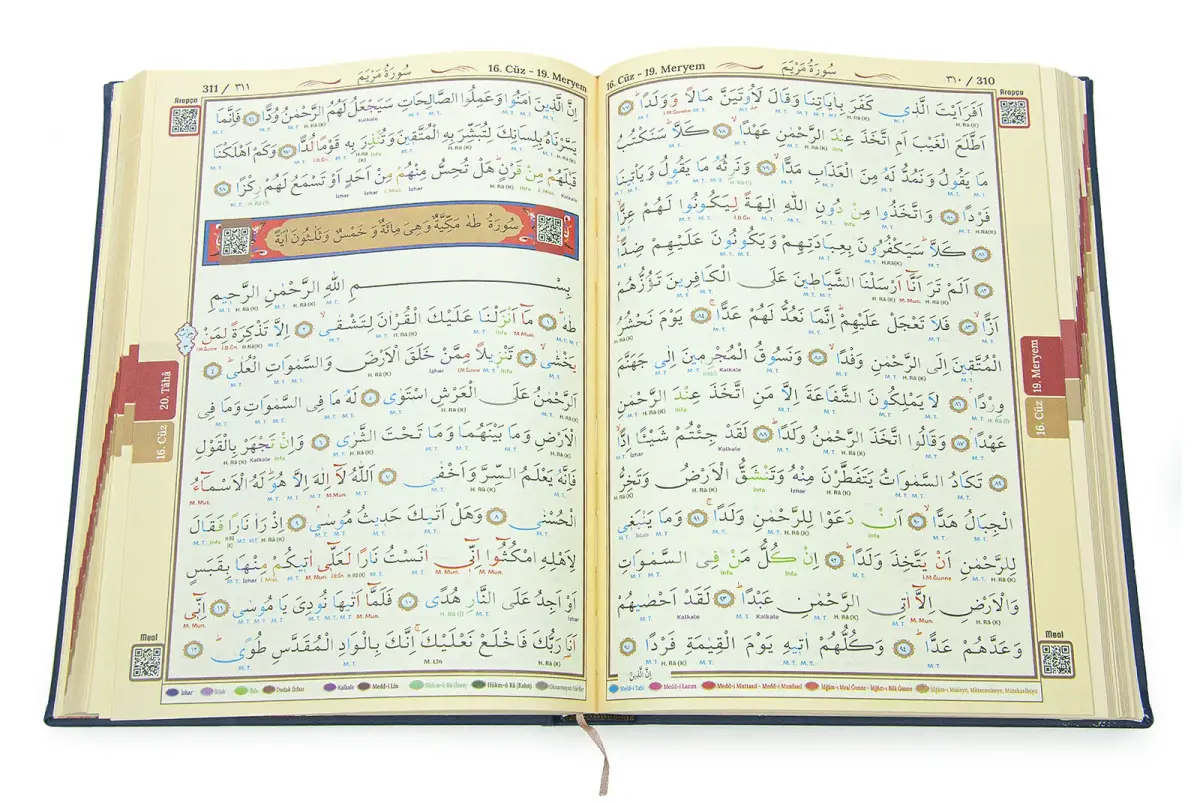 16. Cüz - 19. Meryem سُورَةُ مَرْيَمَ ٣١٠ / 310
Arapça
اَفَرَاَيْتَ الَّذٖى كَفَرَ بِاٰيَاتِنَا وَقَالَ لَاُو۫تَيَنَّ مَالاً وَوَلَدًاۜ ﴿٧٧﴾
اَطَّلَعَ الْغَيْبَ اَمِ اتَّخَذَ عِنْدَ الرَّحْمٰنِ عَهْدًاۙ ﴿٧٨﴾ كَلَّاۜ سَنَكْتُبُ
مَا يَقُولُ وَنَمُدُّ لَهُ مِنَ الْعَذَابِ مَدًّاۙ ﴿٧٩﴾ وَنَرِثُهُ مَا يَقُولُ وَيَأْتٖينَا
فَرْدًا ﴿٨٠﴾ وَاتَّخَذُوا مِنْ دُونِ اللّٰهِ اٰلِهَةً لِيَكُونُوا لَهُمْ عِزًّاۙ
﴿٨١﴾ كَلَّاۜ سَيَكْفُرُونَ بِعِبَادَتِهِمْ وَيَكُونُونَ عَلَيْهِمْ ضِدًّا
﴿٨٢﴾ اَلَمْ تَرَ اَنَّٓا اَرْسَلْنَا الشَّيَاطٖينَ عَلَى الْكَافِرٖينَ تَؤُزُّهُمْ
اَزًّاۙ ﴿٨٣﴾ فَلَا تَعْجَلْ عَلَيْهِمْۜ اِنَّمَا نَعُدُّ لَهُمْ عَدًّاۚ ﴿٨٤﴾ يَوْمَ نَحْشُرُ
الْمُتَّقٖينَ اِلَى الرَّحْمٰنِ وَفْدًاۙ ﴿٨٥﴾ وَنَسُوقُ الْمُجْرِمٖينَ اِلٰى جَهَنَّمَ
وِرْدًاۢ ﴿٨٦﴾ لَا يَمْلِكُونَ الشَّفَاعَةَ اِلَّا مَنِ اتَّخَذَ عِنْدَ الرَّحْمٰنِ
عَهْدًاۢ ﴿٨٧﴾ وَقَالُوا اتَّخَذَ الرَّحْمٰنُ وَلَدًاۜ ﴿٨٨﴾ لَقَدْ جِئْتُمْ شَيْـًٔا اِدًّاۙ
﴿٨٩﴾ تَكَادُ السَّمٰوَاتُ يَتَفَطَّرْنَ مِنْهُ وَتَنْشَقُّ الْاَرْضُ وَتَخِرُّ
الْجِبَالُ هَدًّاۙ ﴿٩٠﴾ اَنْ دَعَوْا لِلرَّحْمٰنِ وَلَدًاۚ ﴿٩١﴾ وَمَا يَنْبَغٖى
لِلرَّحْمٰنِ اَنْ يَتَّخِذَ وَلَدًاۜ ﴿٩٢﴾ اِنْ كُلُّ مَنْ فِى السَّمٰوَاتِ
وَالْاَرْضِ اِلَّٓا اٰتِى الرَّحْمٰنِ عَبْدًاۜ ﴿٩٣﴾ لَقَدْ اَحْصٰيهُمْ
وَعَدَّهُمْ عَدًّاۜ ﴿٩٤﴾ وَكُلُّهُمْ اٰتٖيهِ يَوْمَ الْقِيٰمَةِ فَرْدًا ﴿٩٥﴾
اِنَّ الَّذٖينَ
19. Meryem
16. Cüz
Meal
Medd-i Tabî Medd-i Lazım Medd-i Muttasıl - Medd-i Munfasıl İdğam-ı Meal Ğunne - İdğam-ı Bilâ Ğunne
311 / ٣١١ سُورَةُ مَرْيَمَ 16. Cüz - 19. Meryem
Arapça
اِنَّ الَّذٖينَ اٰمَنُوا وَعَمِلُوا الصَّالِحَاتِ سَيَجْعَلُ لَهُمُ الرَّحْمٰنُ وُدًّا ﴿٩٦﴾ فَاِنَّمَا
يَسَّرْنَاهُ بِلِسَانِكَ لِتُبَشِّرَ بِهِ الْمُتَّقٖينَ وَتُنْذِرَ بِهٖ قَوْمًا لُدًّا ﴿٩٧﴾ وَكَمْ اَهْلَكْنَا
قَبْلَهُمْ مِنْ قَرْنٍۜ هَلْ تُحِسُّ مِنْهُمْ مِنْ اَحَدٍ اَوْ تَسْمَعُ لَهُمْ رِكْزًا ﴿٩٨﴾
سُورَةُ طٰهٰ مَكِّيَّةٌ وَهِىَ مِائَةٌ وَخَمْسٌ وَثَلٰثُونَ اٰيَةً
بِسْمِ اللّٰهِ الرَّحْمٰنِ الرَّحٖيمِ
طٰهٰۜ ﴿١﴾ مَٓا اَنْزَلْنَا عَلَيْكَ الْقُرْاٰنَ لِتَشْقٰىۙ ﴿٢﴾ اِلَّا تَذْكِرَةً لِمَنْ
يَخْشٰىۙ ﴿٣﴾ تَنْزٖيلاً مِمَّنْ خَلَقَ الْاَرْضَ وَالسَّمٰوَاتِ الْعُلٰىۜ ﴿٤﴾
اَلرَّحْمٰنُ عَلَى الْعَرْشِ اسْتَوٰى ﴿٥﴾ لَهُ مَا فِى السَّمٰوَاتِ وَمَا فِى
الْاَرْضِ وَمَا بَيْنَهُمَا وَمَا تَحْتَ الثَّرٰى ﴿٦﴾ وَاِنْ تَجْهَرْ بِالْقَوْلِ
فَاِنَّهُ يَعْلَمُ السِّرَّ وَاَخْفٰى ﴿٧﴾ اَللّٰهُ لَٓا اِلٰهَ اِلَّا هُوَۜ لَهُ الْاَسْمَٓاءُ
الْحُسْنٰى ﴿٨﴾ وَهَلْ اَتٰيكَ حَدٖيثُ مُوسٰىۢ ﴿٩﴾ اِذْ رَاٰ نَارًا فَقَالَ
لِاَهْلِهِ امْكُثُٓوا اِنّٖٓى اٰنَسْتُ نَارًا لَعَلّٖٓى اٰتٖيكُمْ مِنْهَا بِقَبَسٍ
اَوْ اَجِدُ عَلَى النَّارِ هُدًى ﴿١٠﴾ فَلَمَّٓا اَتٰيهَا نُودِىَ يَا مُوسٰىۜ ﴿١١﴾ اِنّٖٓى
اَنَا رَبُّكَ فَاخْلَعْ نَعْلَيْكَۚ اِنَّكَ بِالْوَادِ الْمُقَدَّسِ طُوًىۜ ﴿١٢﴾
20. Tâhâ
16. Cüz
Meal
İzhar İklab İhfa Dudak İhfası Kalkale Medd-i Lîn Hükm-ü Râ (İnce) Hükm-ü Râ (Kalın) Okunmayan Harfler